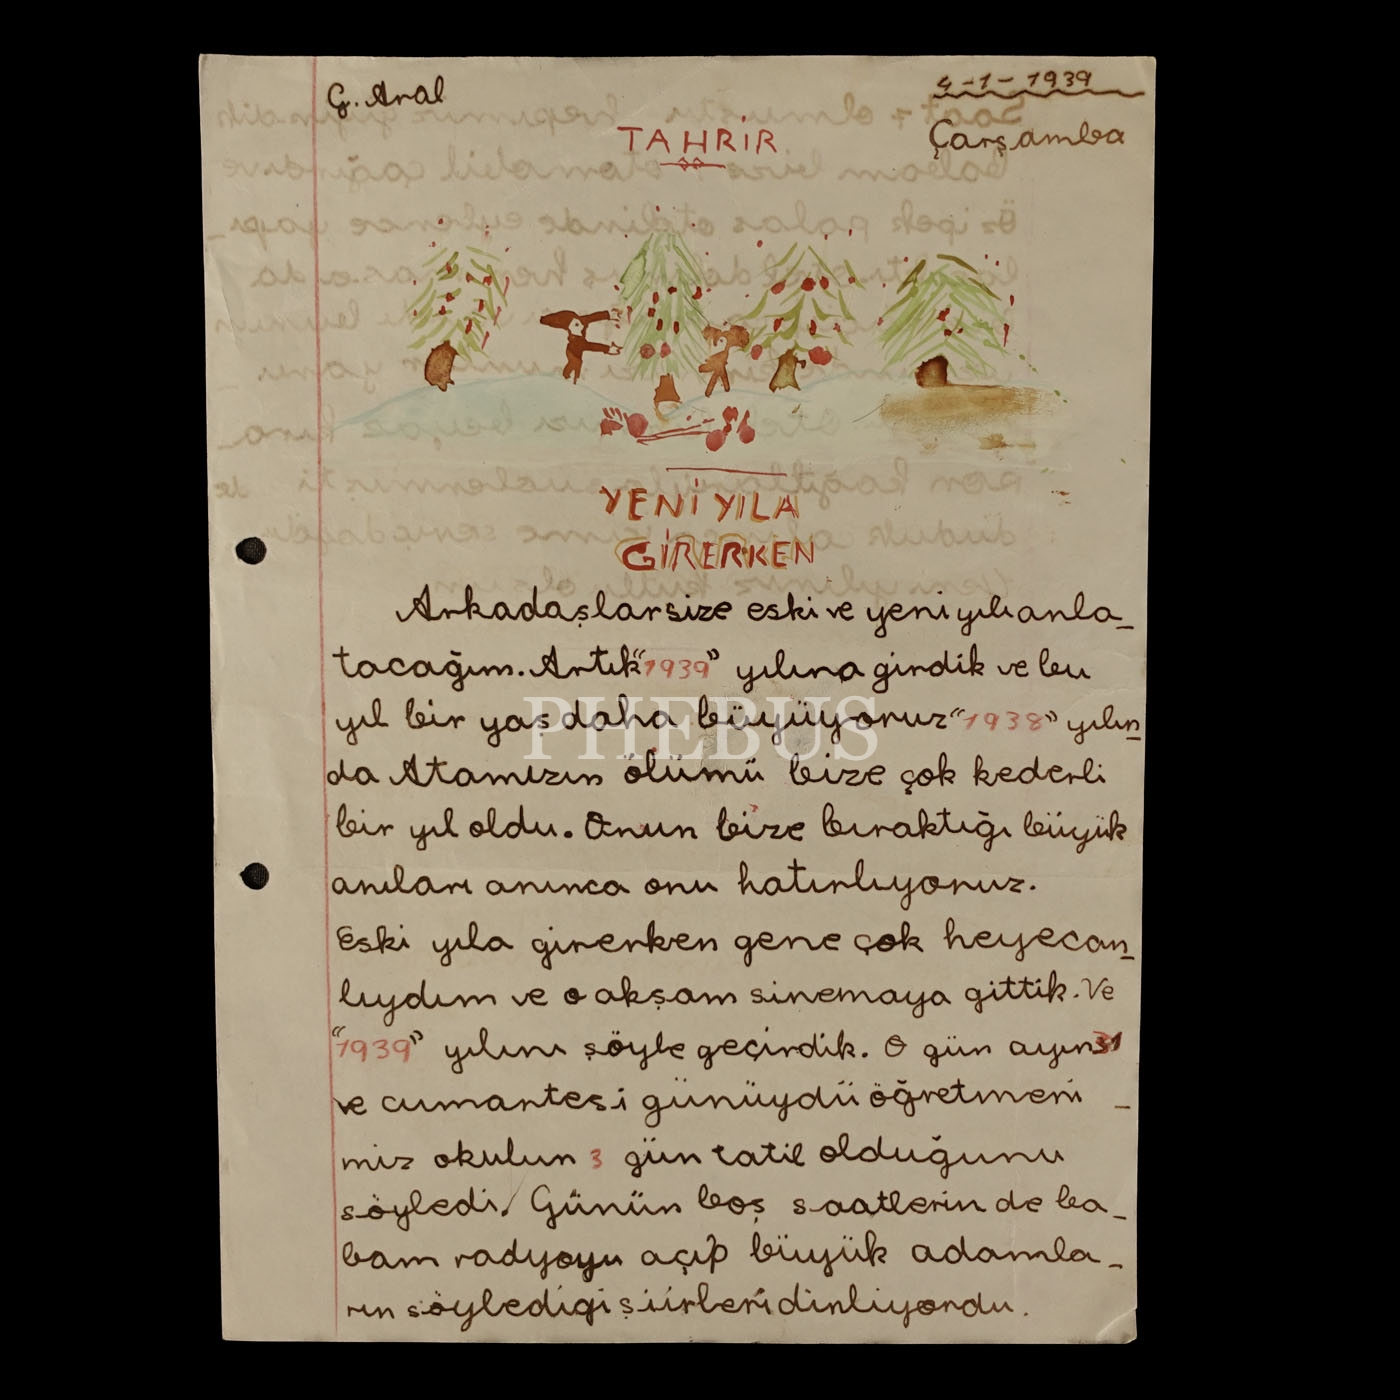 G. Aral
4-1-1939
TAHRİR
Çarşamba
YENİ YILA
GİRERKEN
Arkadaşlar size eski ve yeni yılı anla_
tacağım. Artık "1939" yılına girdik ve bu
yıl bir yaş daha büyüyoruz "1938" yılın
da Atamızın ölümü bize çok kederli
bir yıl oldu. Onun bize bıraktığı büyük
anıları anınca onu hatırlıyoruz.
Eski yıla girerken gene çok heyecan_
lıydım ve o akşam sinemaya gittik. Ve
"1939" yılını şöyle geçirdik. O gün ayın 31
ve cumartesi günüydü öğretmeni _
miz okulun 3 gün tatil olduğunu
söyledi. Günün boş saatlerin de ba_
bam radyoyu açıp büyük adamla_
rın söylediği şiirleri dinliyordu.
PHEBUS